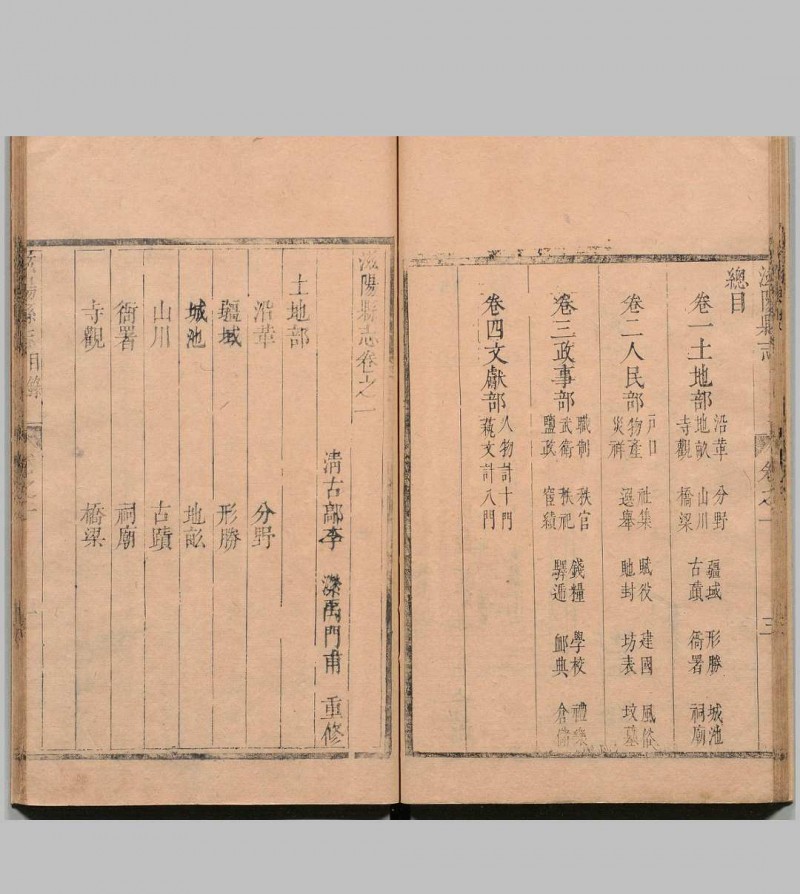 滋陽縣志
卷之一
三
總目
卷一土地部
沿革 分野 疆域 形勝 城池
地畝 山川 古蹟 衙署 祠廟
寺觀 橋梁
卷二人民部
戸口 社集 賦役 建國 風俗
物產 選舉 馳封 坊表 坟墓
災祥
卷三政事部
職制 秩官 錢糧 學校 禮樂
武衛 秩祀 驛遞 卹典 倉儲
鹽政 宦績
卷四文獻部
人物計十門
蓺文計八門
滋陽縣志卷之一
清古部李 瀠禹門甫 重修
土地部
沿革 分野
疆域 形勝
城池 地畝
山川 古蹟
衙署 祠廟
寺觀 橋梁
滋陽縣志目錄
卷之一
一